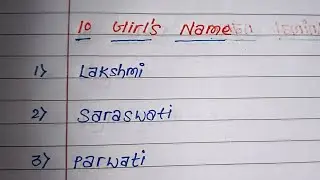 10 Girl's Name
1) Lakshmi
2) Saraswati
3) Parwati